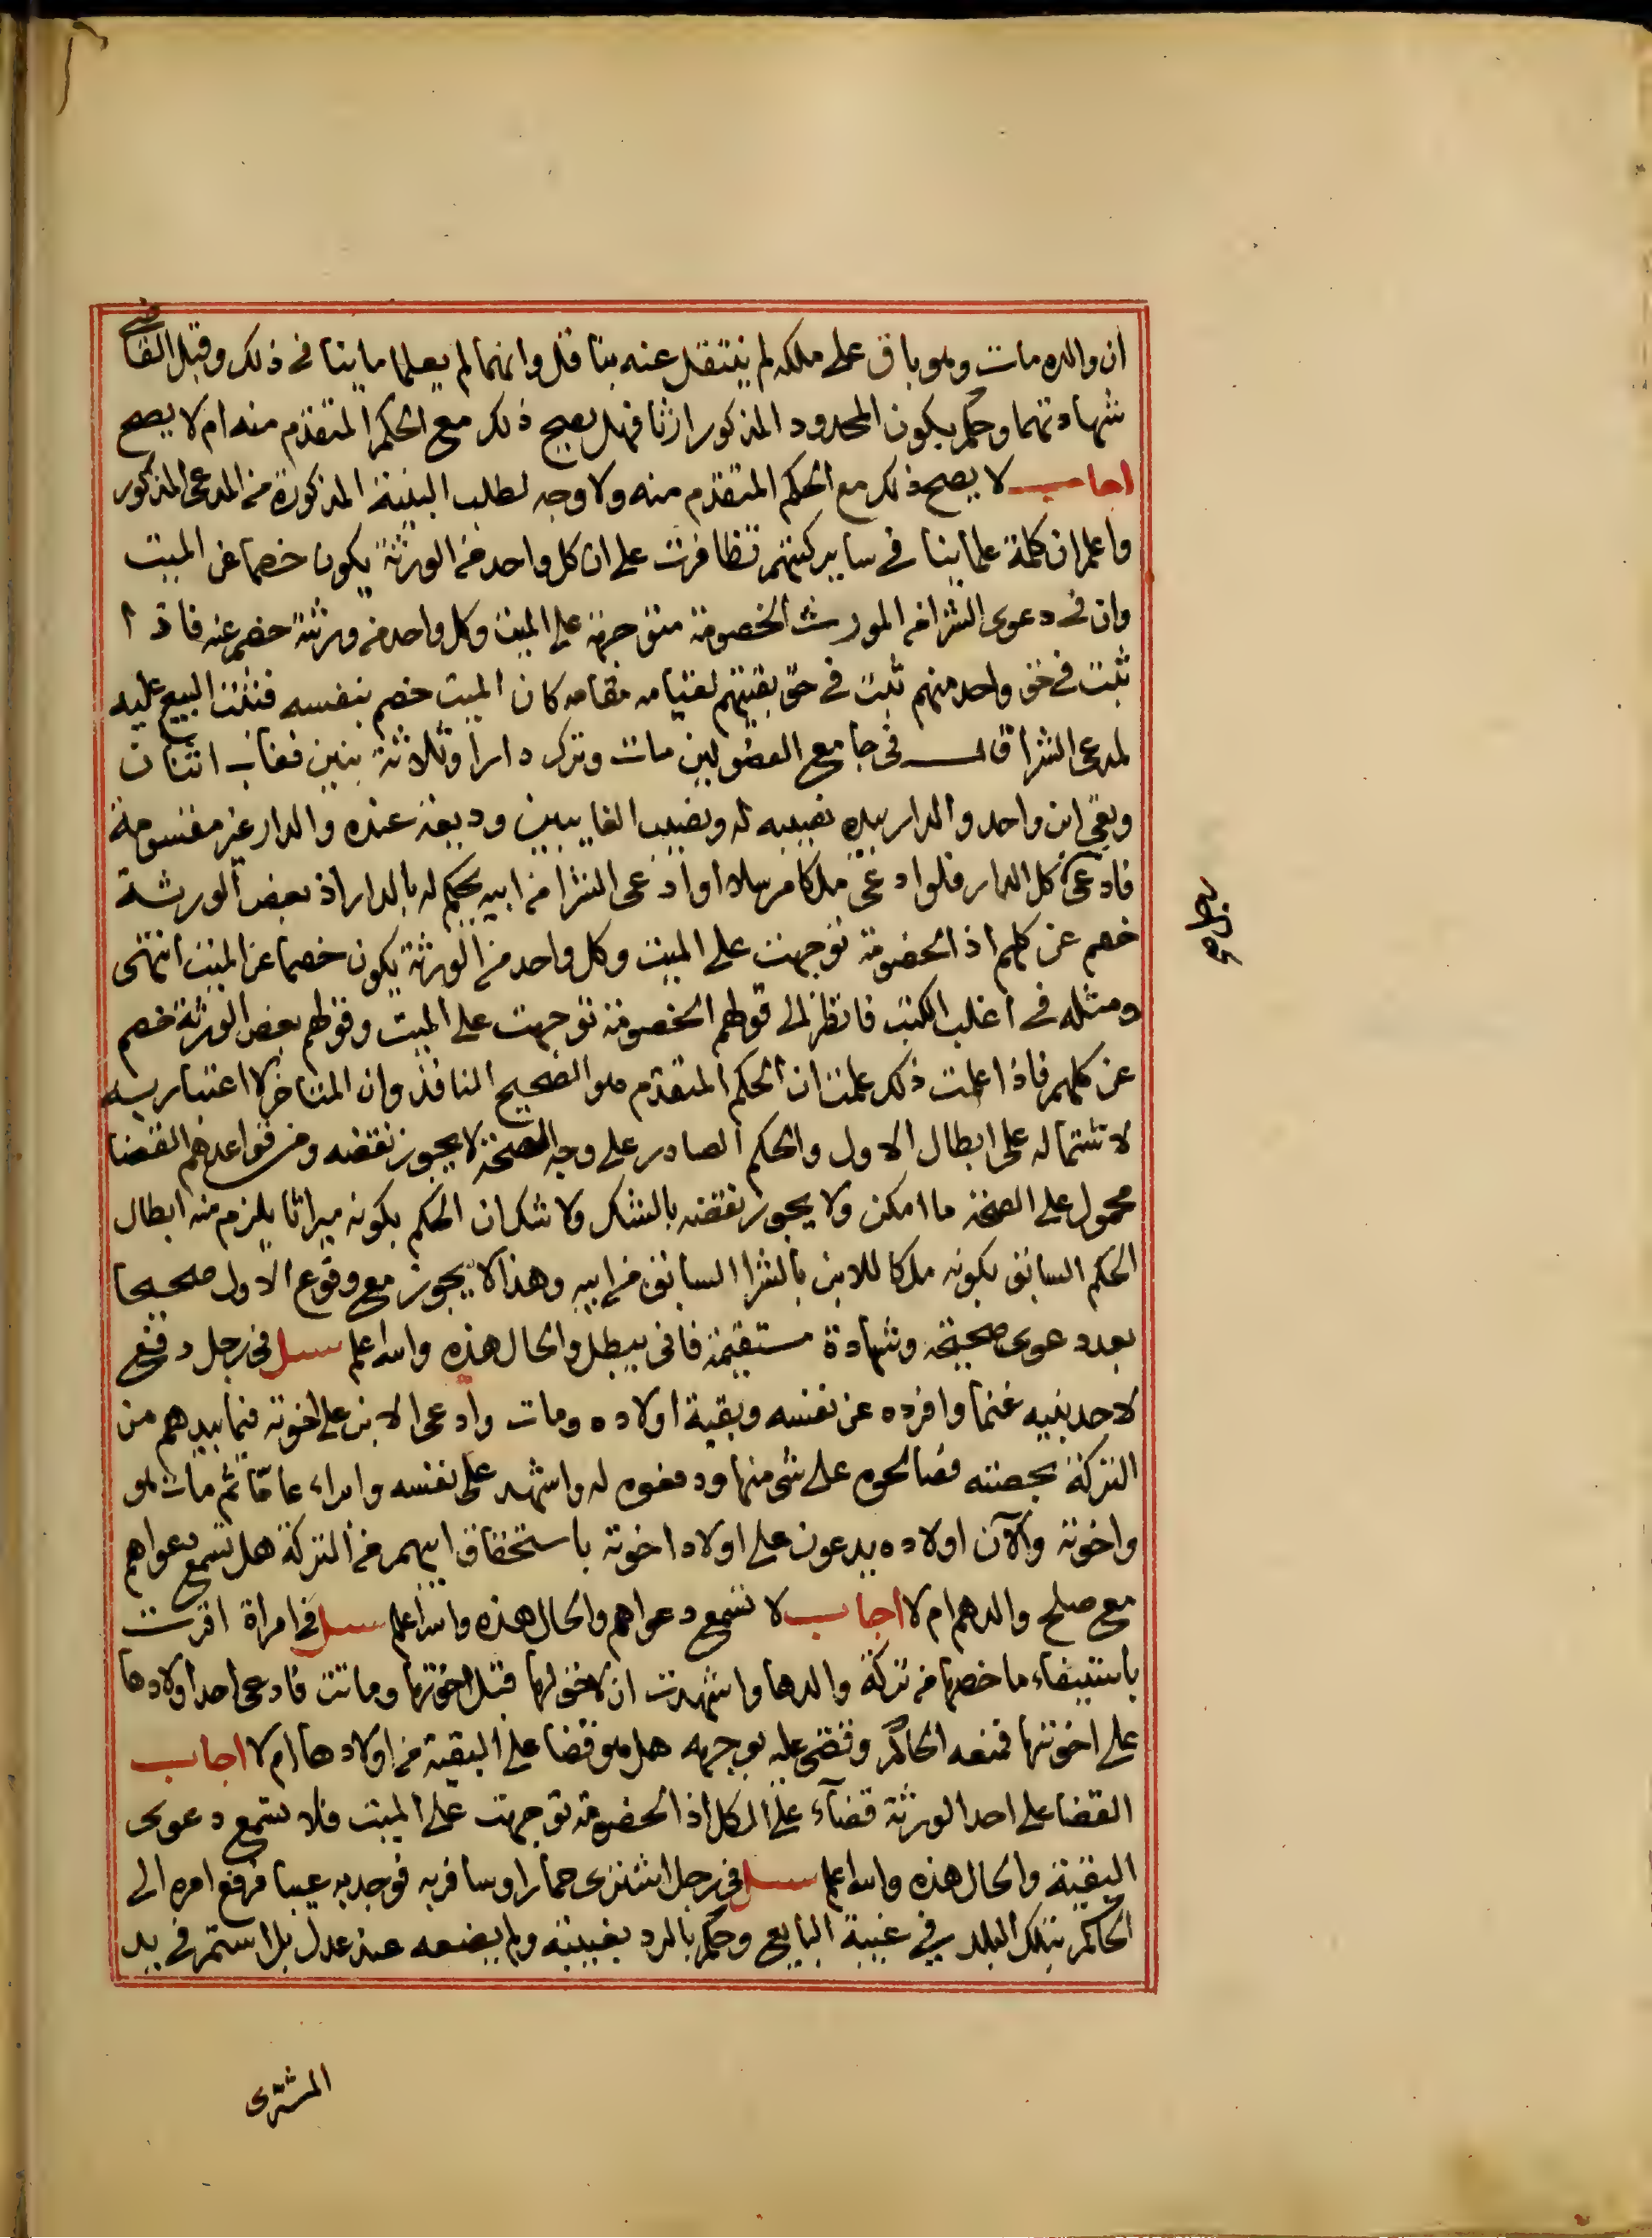 ان والده مات وهو باق على ملكه لم ينتقل عنه بناقل وانهما لم يعلما ما ينافي ذلك وقبل القاضي
شهادتهما وحكم بكون المحدود المذكور ارثا فهل يصح ذلك مع الحكم المتقدم منه ام لا يصح
اجاب لا يصح ذلك مع الحكم المتقدم منه ولا وجه لطلب البينة المذكورة من المدعى المذكور
واعلم ان كلمة علماينا في ساير كتبهم تظافرت على ان كل واحد من الورثة يكون خصما عن الميت
وان في دعوى الشرا من المورث الخصومة متوجهة على الميت وكل واحد من ورثته خصم عنه فاذا
ثبت في حق واحد منهم ثبت في حق بقيتهم لقيامه مقامه كان الميت خصم بنفسه فثبت البيع عليه
لمدعى الشرا قال في جامع الفصولين مات وترك دارا وثلاثة بنين فغاب اثنان
وبقي ابن واحد والدار بيده نصيبه له ونصيب الغايبين وديعة عنده والدار غير مقسومة
فادعى كل الدار فلو ادعى ملكا مرسلا او ادعى الشرا من ابيه يحكم له بالدار اذ بعض الورثة
خصم عن كلهم اذ الخصومة توجهت على الميت وكل واحد من الورثة يكون خصما عن الميت انتهى
ومثله في اغلب الكتب فانظر الى قولهم الخصومة توجهت على الميت وقولهم بعض الورثة خصم
عن كلهم فاذا علمت ذلك علمت ان الحكم المتقدم هو الصحيح النافذ وان المتاخر لا اعتبار به
لاشتماله على ابطال الاول والحكم الصادر على وجه الصحة لا يجوز نقضه ومن قواعدهم القضا
محمول على الصحة ما امكن ولا يجوز نقضه بالشك ولا شك ان الحكم بكونه ميراثا يلزم منه ابطال
الحكم السابق بكونه ملكا للابن بالشرا السابق من ابيه وهذا لا يجوز مع وقوع الاول صحيحا
بعد دعوى صحيحة وشهادة مستقيمة فانى يبطل والحال هذه والله اعلم سئل في رجل دفع
لاحد بنيه غنما وافرده عن نفسه وبقية اولاده ومات وادعى الابن على اخوته فيما بيدهم من
التركة بحصته فصالحوه على شى منها ودفعوه له واشهد على نفسه وابراء عاما ثم مات هو
واخوته والآن اولاده يدعون على اولاد اخوته باستحقاق ابيهم من التركة هل تسمع دعواهم
مع صلح والدهم ام لا اجاب لا تسمع دعواهم والحال هذه والله اعلم سئل في امراة اقرت
باستيفاء ما خصها من تركة والدها واشهدت ان لا حق لها قبل اخوتها وماتت فادعى احد اولادها
على اخوتها فمنعه الحاكم وقضى عليه بوجهه هل هو قضا على البقية من اولادها ام لا اجاب
القضا على احد الورثة قضاء على الكل اذ الخصومة توجهت على الميت فلا تسمع دعوى
البقية والحال هذه والله اعلم سئل في رجل اشترى حمارا وسافر به فوجد به عيبا فرفع امره الى
الحاكم بتلك البلد في غيبة البايع وحكم بالرد بغيبته ولم يضعه عند عدل بل استمر في يد
المشترى